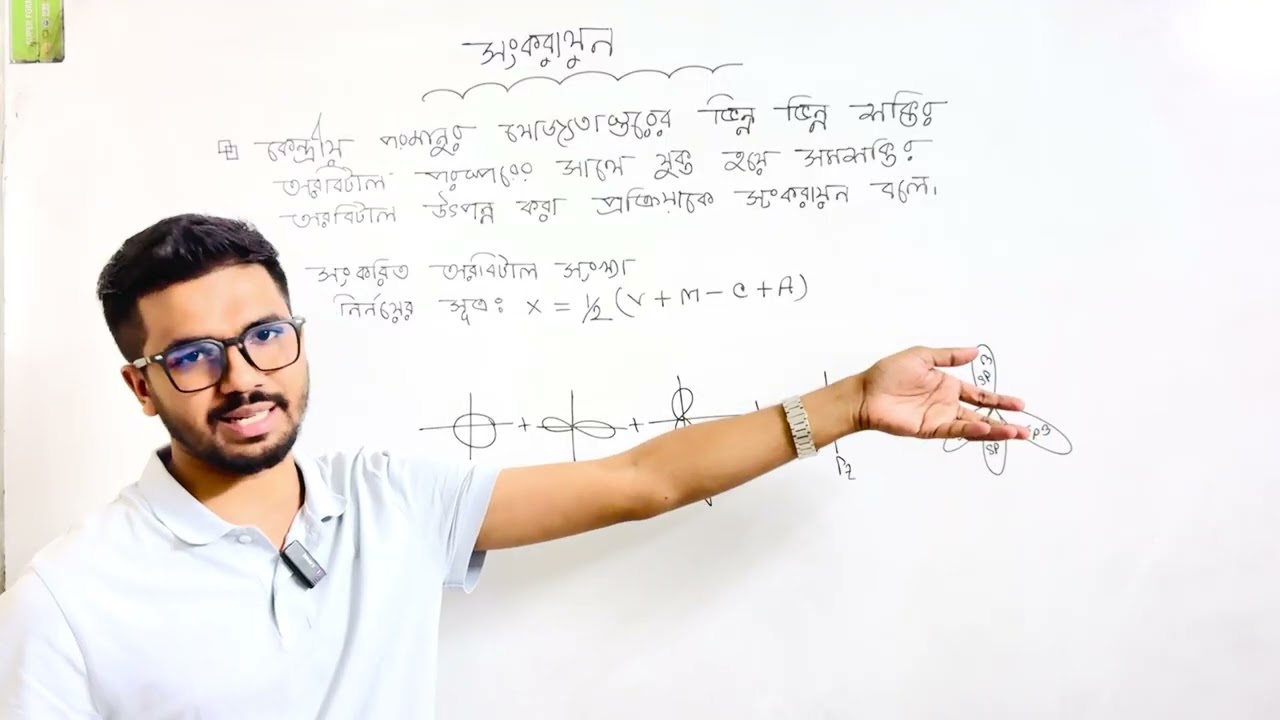 সংকরায়ন
কেন্দ্রীয় পরমানুর যোজ্যতাস্তরের ভিন্ন ভিন্ন শক্তির
অরবিটাল পরস্পরের সাথে যুক্ত হয়ে সমশক্তির
অরবিটাল উৎপন্ন করা প্রক্রিয়াকে সংকরায়ন বলে।
সংকরিত অরবিটাল সংখ্যা
নির্নয়ের সূত্র: X = ½ (V + M - C + A)
+ +
Pz
SP3
SP
P3
SUPER